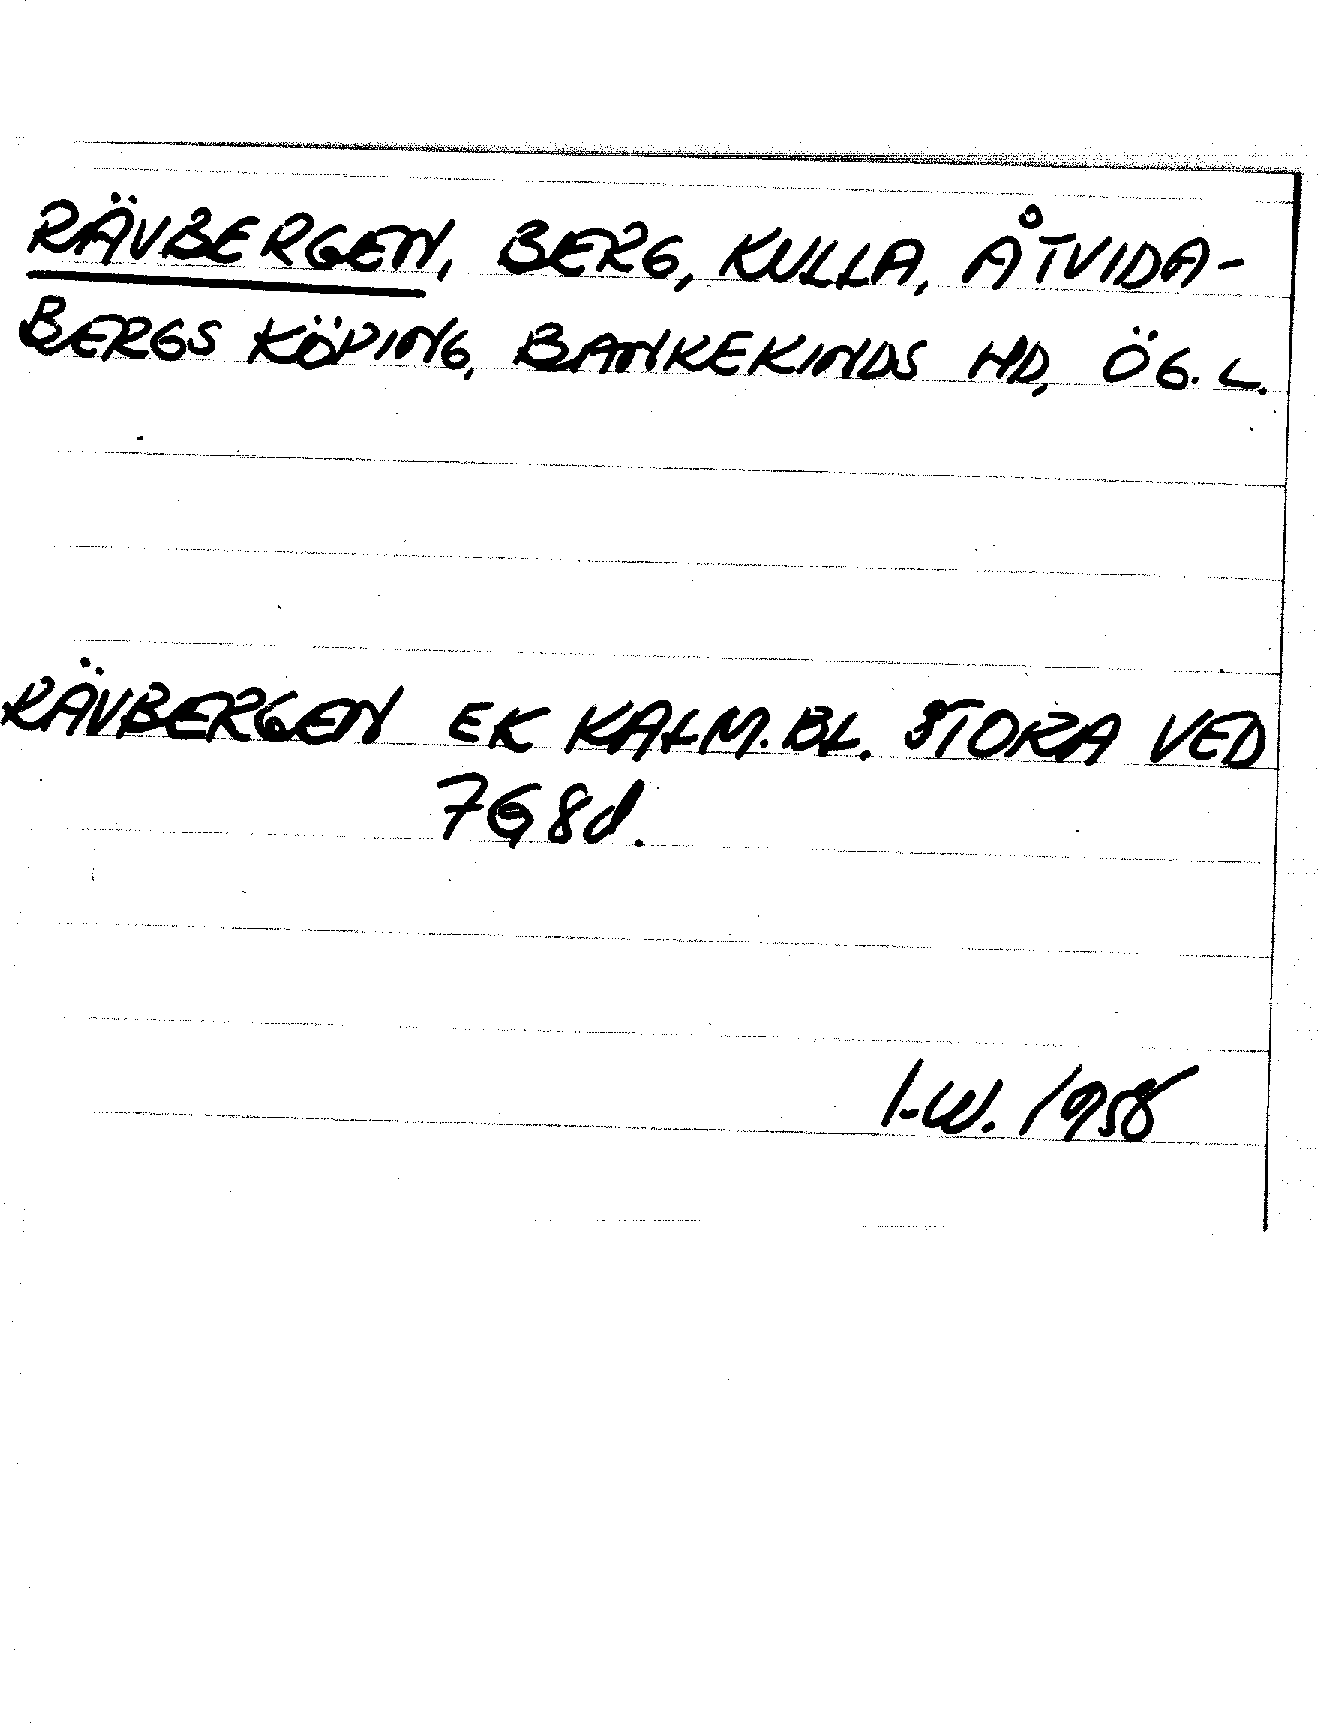 RÄVBERGEN, BERG, KULLA, ÅTVIDA-
BERGS KÖPING, BANKEKINDS HD, ÖG. L.
RÄVBERGEN EK KALM. BL. STORA VED
7G8d.
I-W. 1958